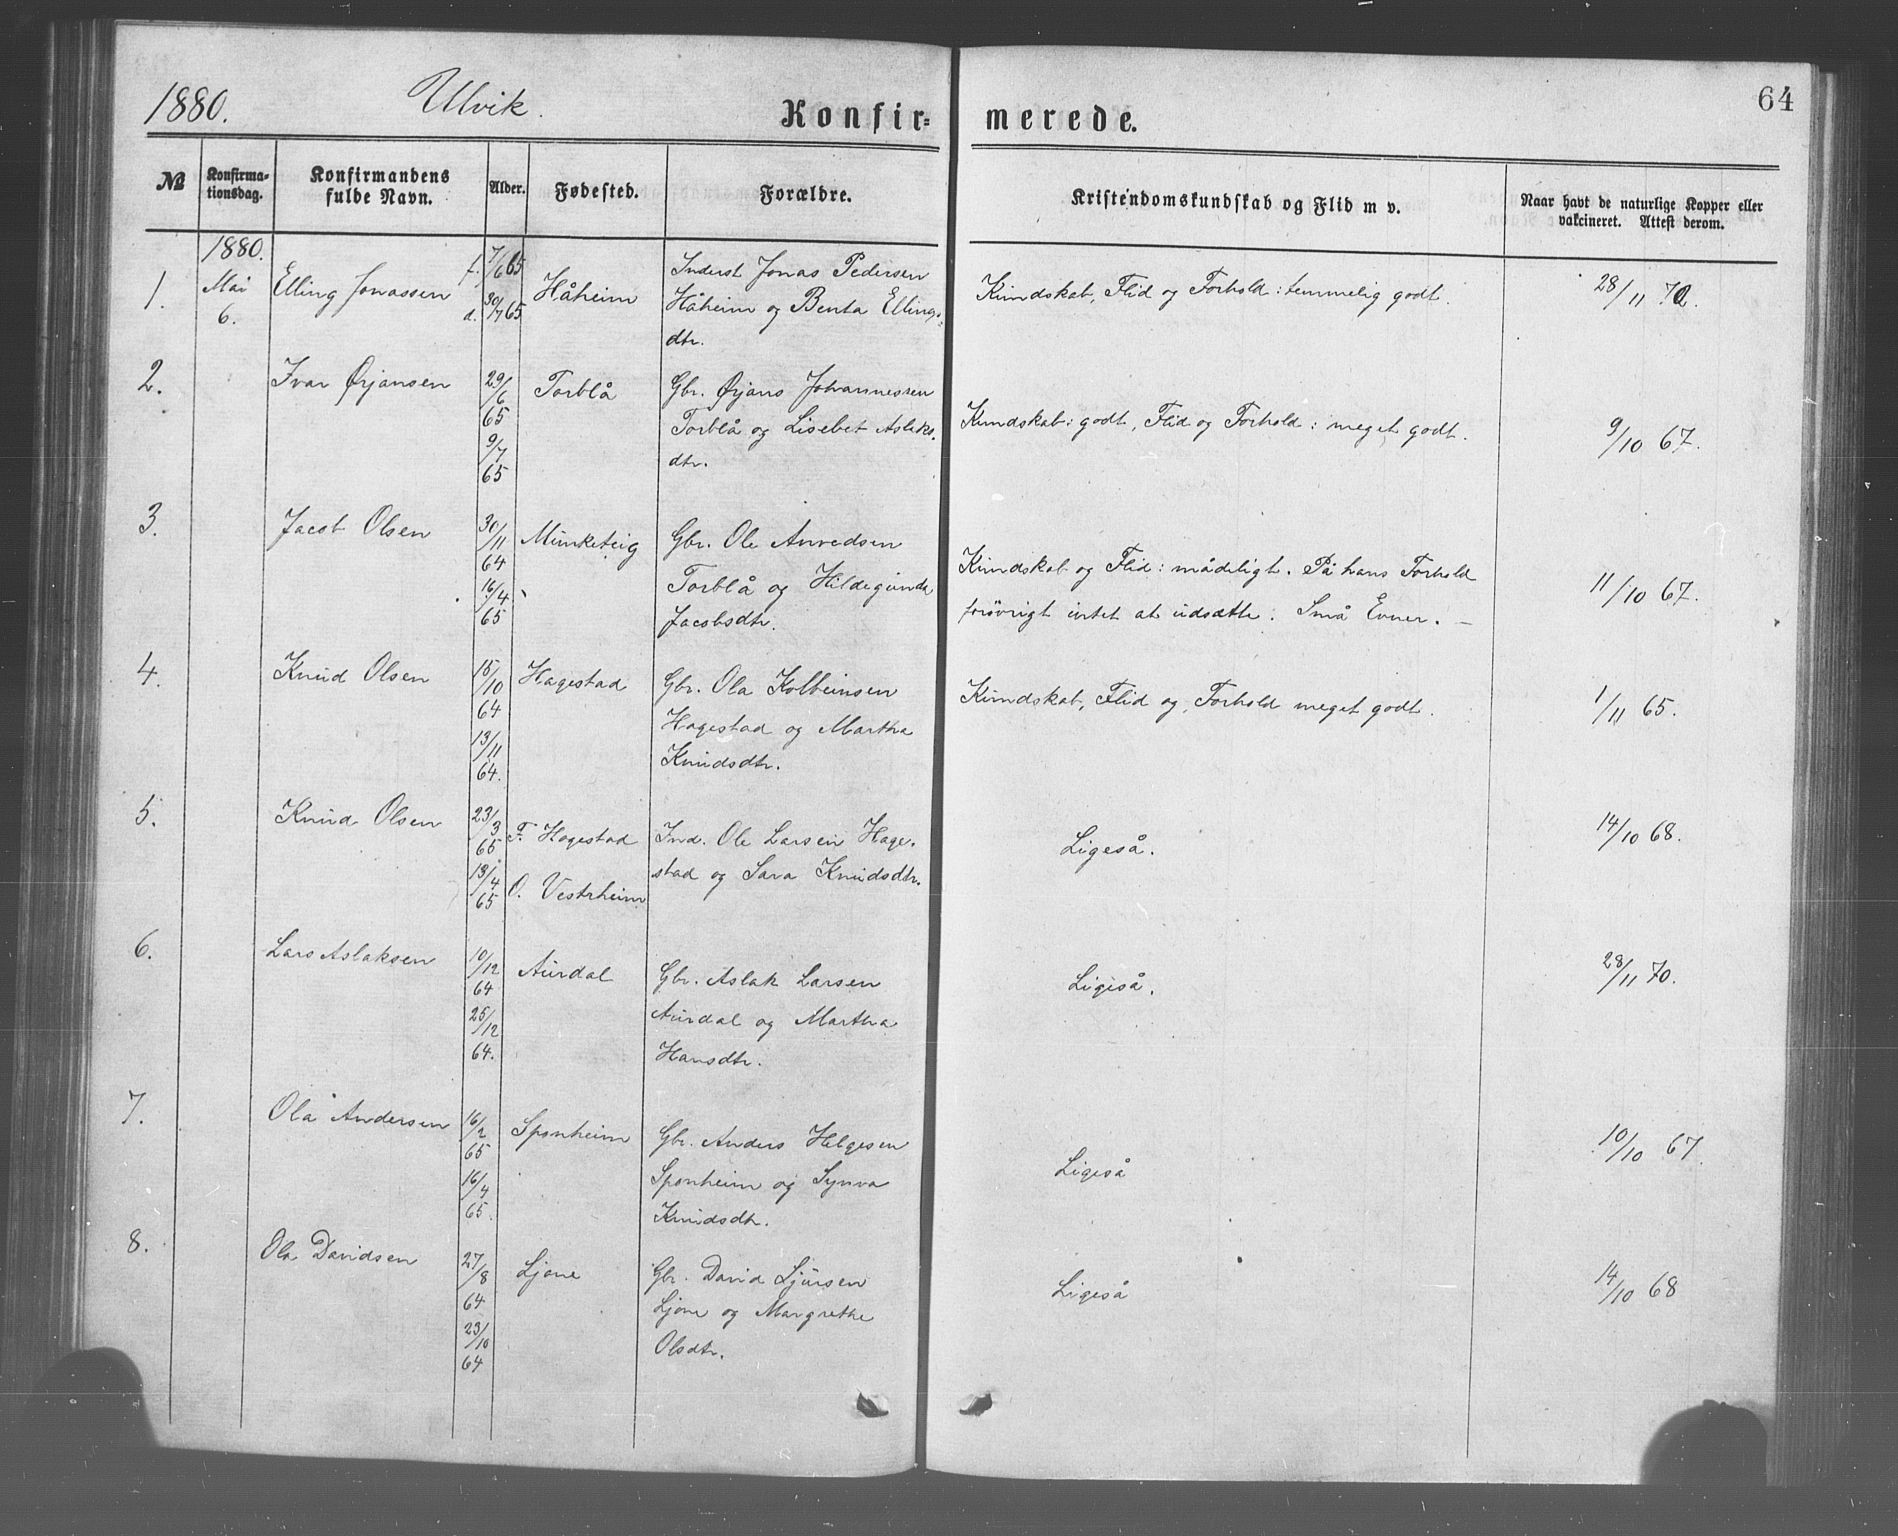 1880. Ulvik. Konfir= merede. 64
№ Konfirma-tionsdag. Konfirmandens fulde Navn. Alder. Fødested. Forældre. Kristendomskundskab og Flid m v. Naar havt de naturlige Kopper eller vakcineret. Attest derom.
1880.
1. Mai 6. Elling Jonassen f. 7/6 65 d. 30/7 65 Håheim Inderst Jonas Pedersen
Håheim og Benta Ellings-
dtr.
Kundskab, Flid og Forhold: temmelig godt. 28/11 72.
2. Ivar Ørjansen 29/6 65 9/7 65 Torblå Gbr. Ørjans Johannessen
Torblå og Lisebet Aslaks.
dtr.
Kundskab: godt, Flid og Forhold: meget godt. 9/10 67.
3. Jacob Olsen 30/11 64 16/4 65 Munketeig Gbr. Ole Anvedsen
Torblå og Hildegunda
Jacobsdtr.
Kundskab og Flid: mådeligt. På hans Forhold
forøvrigt intet at udsætte. Små Evner. –
11/10 67.
4. Knud Olsen 15/10 64 13/11 64. Hagestad Gbr. Ola Kolbeinsen
Hagestad og Martha
Knudsdtr.
Kundskab, Flid og Forhold meget godt. 1/11 65.
5. Knud Olsen 23/3 65 13/4 65 F. Hagestad
O. Vestrheim
Ind. Ole Larsen Hage.
stad og Sara Knudsdtr.
Ligeså. 14/10 68.
6. Lars Aslaksen 10/12 64 25/12 64. Aurdal Gbr. Aslak Larsen
Aurdal og Martha
Hansdtr.
Ligeså. 28/11 70.
7. Ola Andersen 16/2 65 16/4 65. Sponheim Gbr. Anders Helgesen
Sponheim og Synva
Knudsdtr.
Ligeså 10/10 67.
8. Ola Davidsen 27/8 64 23/10 64 Ljone Gbr. David Ljursen
Ljone og Margrethe
Olsdtr.
Ligeså 14/10 68